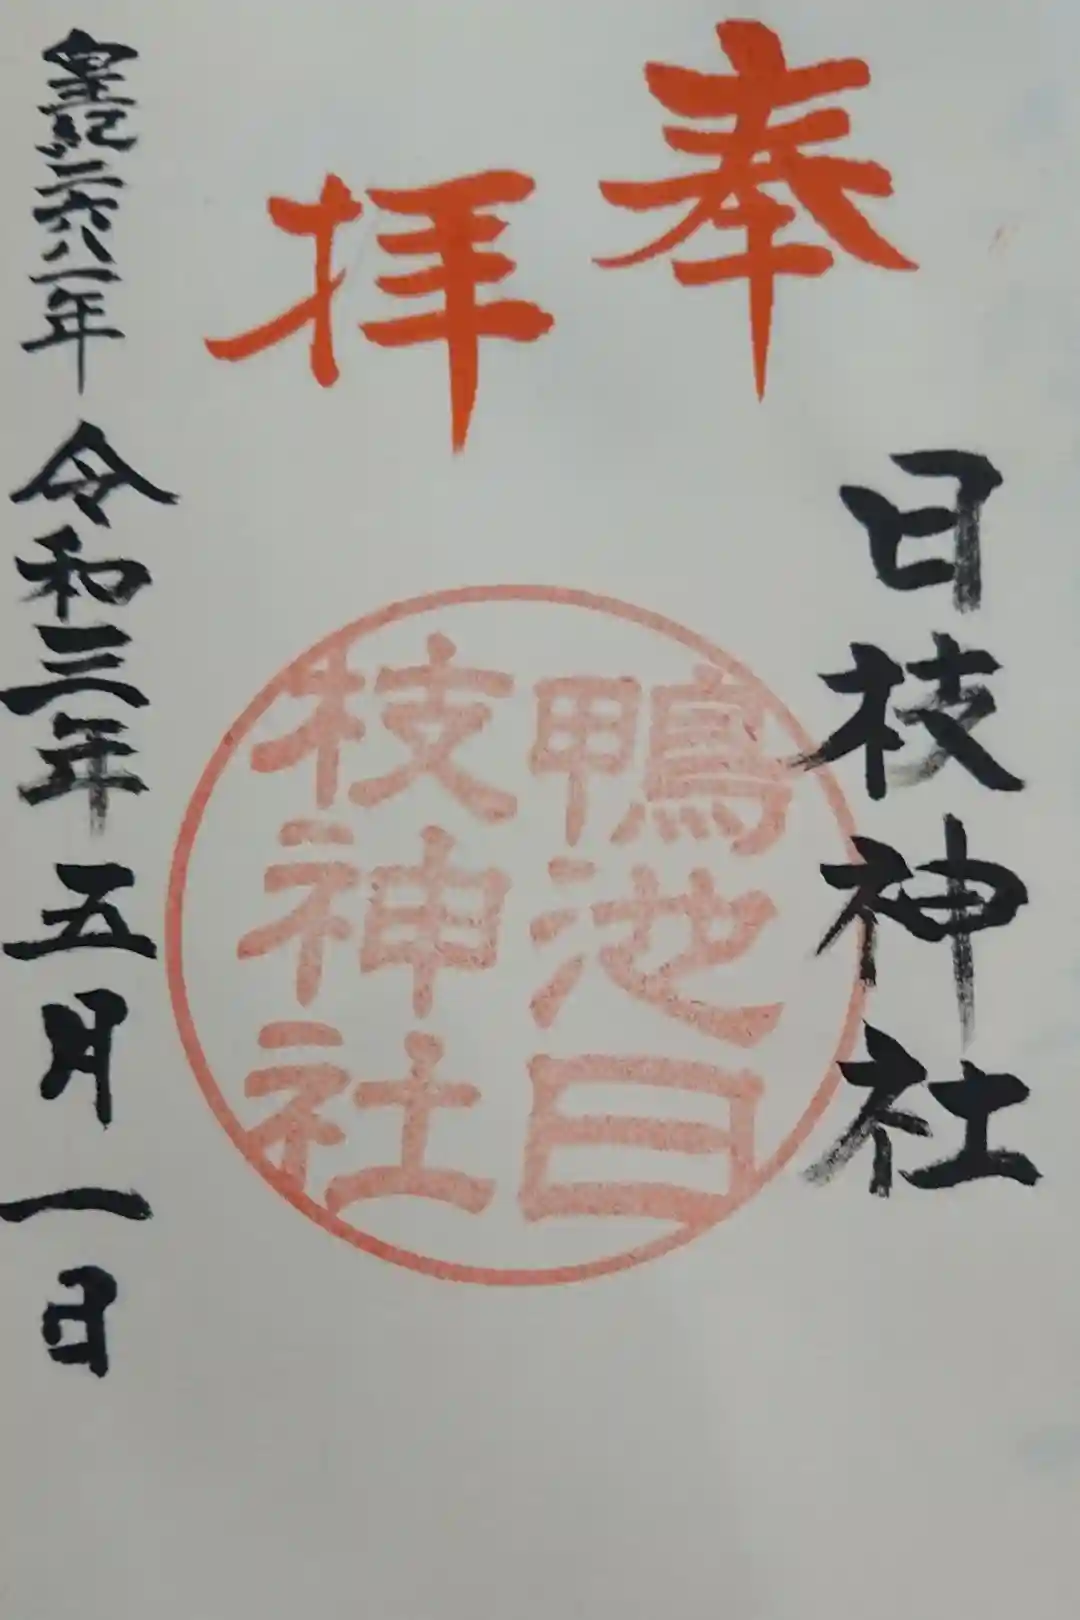 奉拝
日枝神社
鴨池日
枝神社
皇紀二六八一年 令和三年五月一日